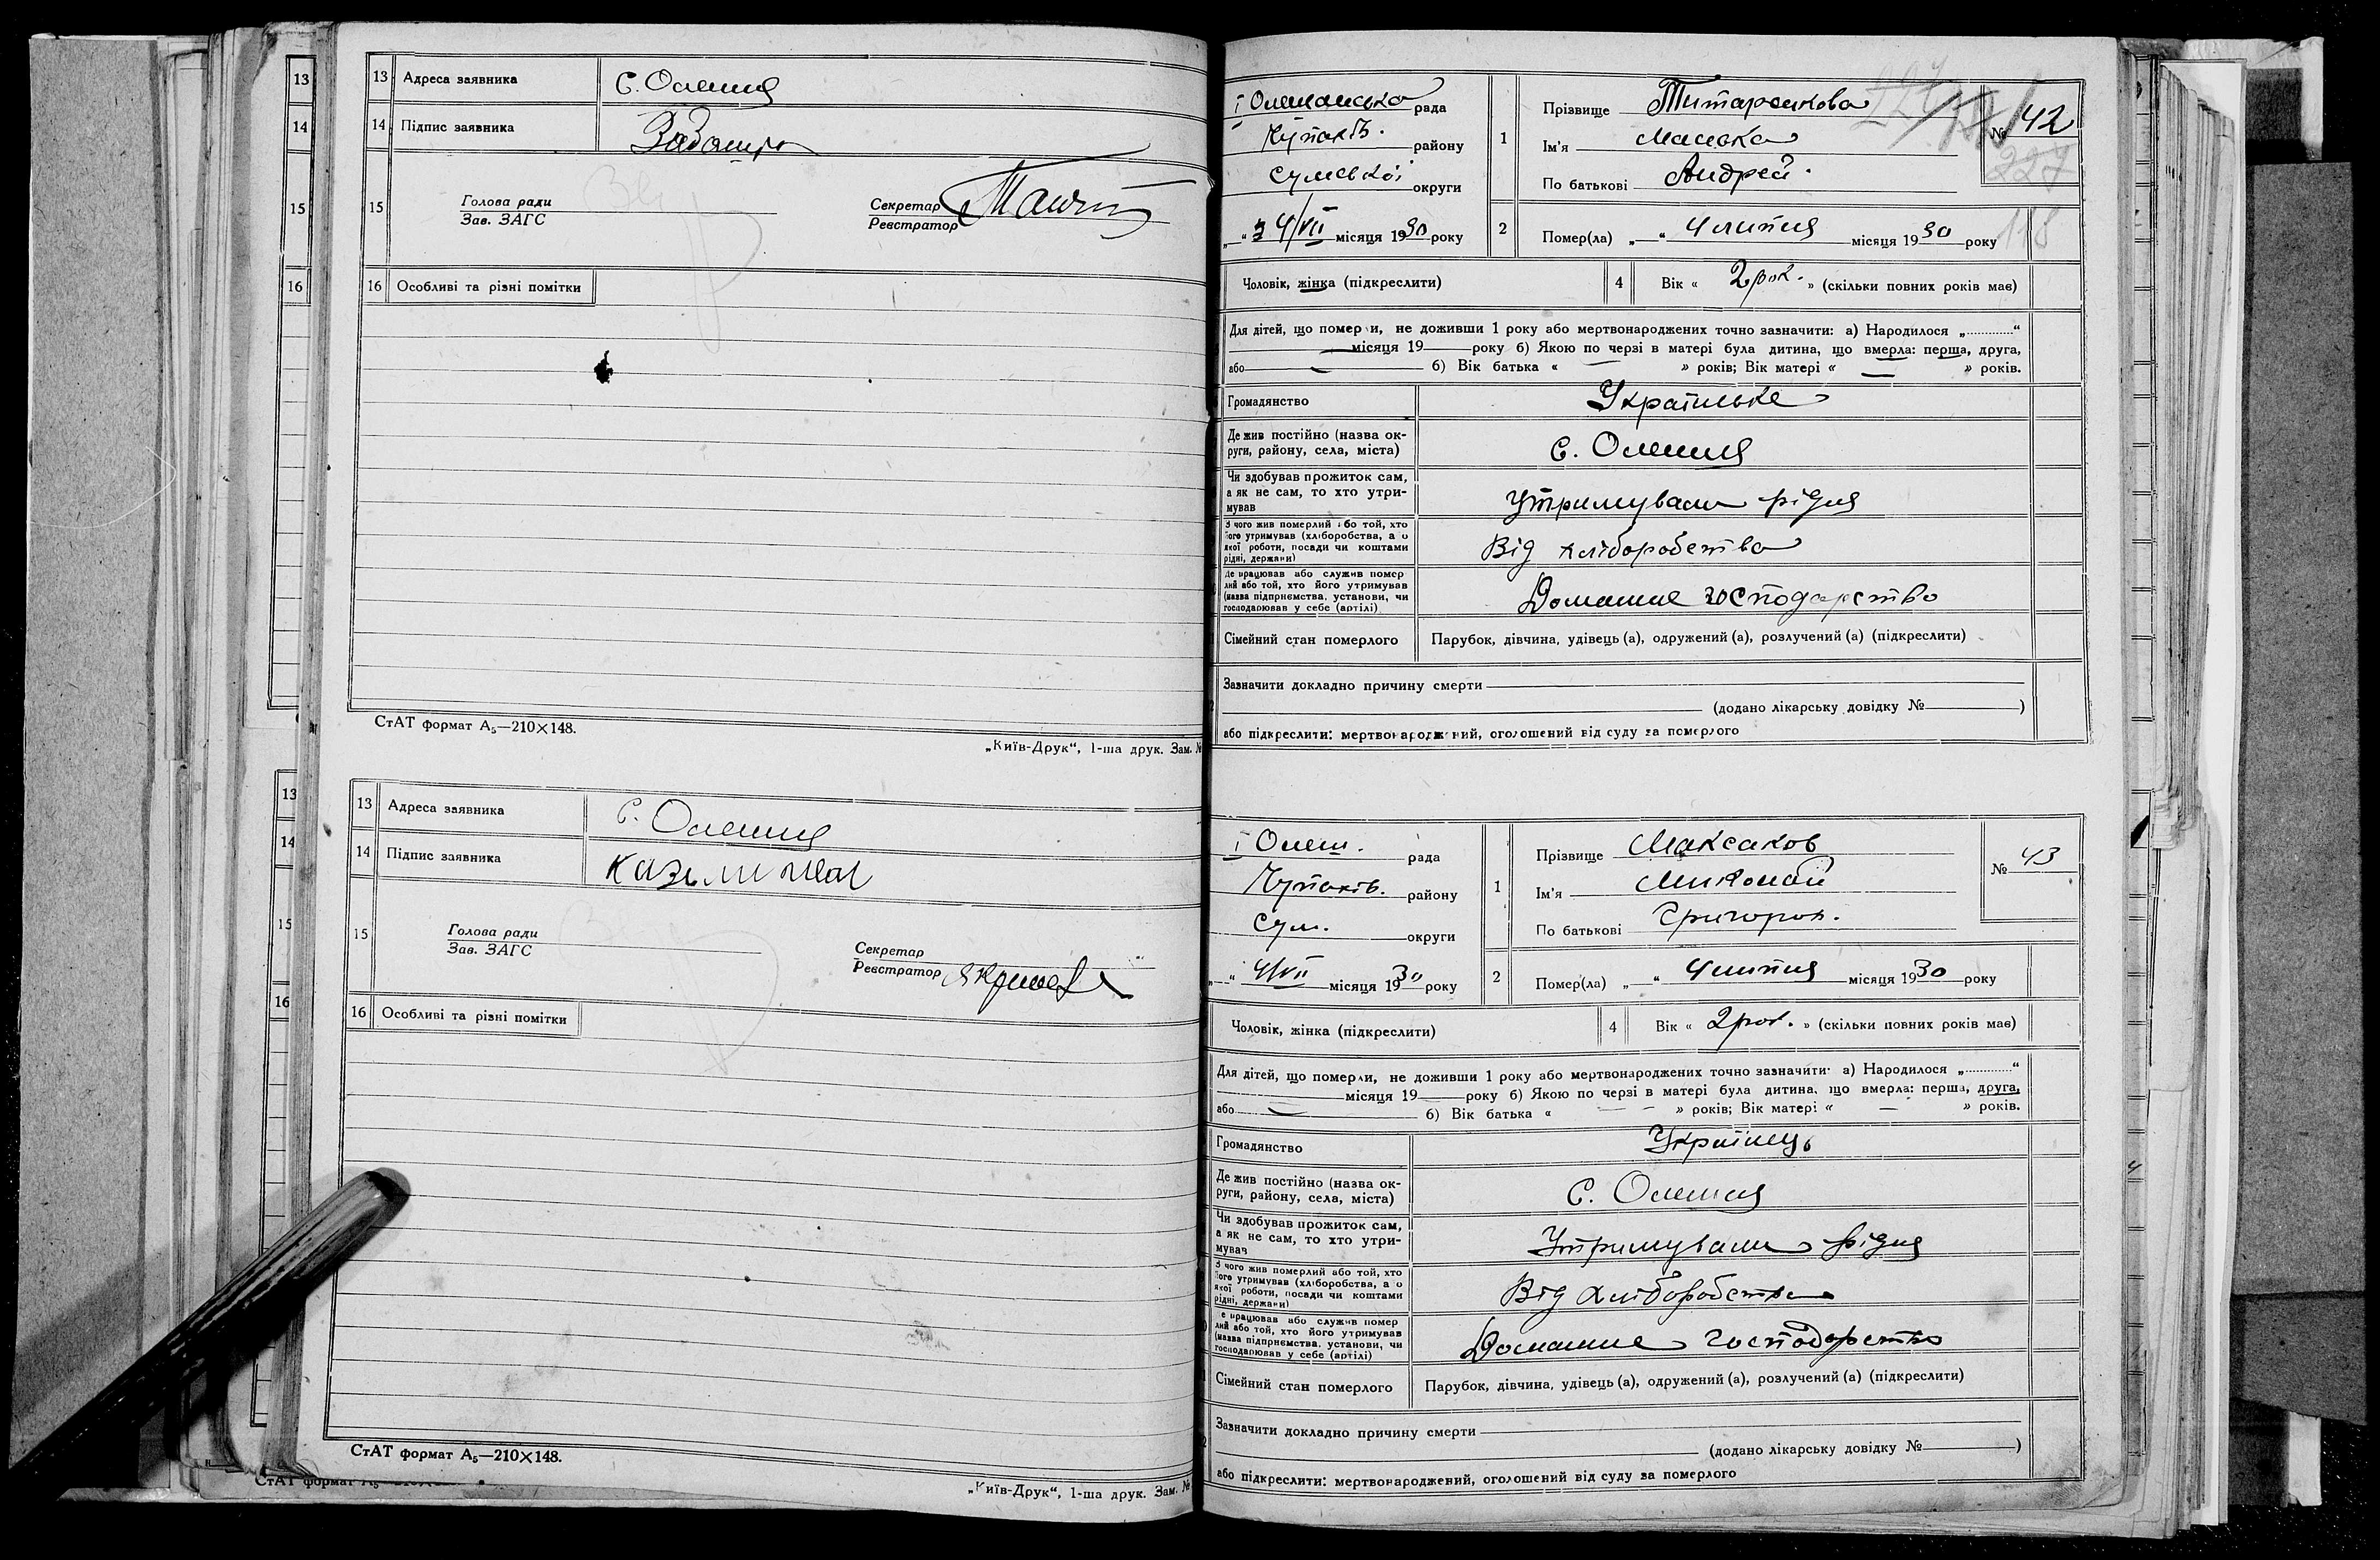 13 Адреса заявника С. Олешня
14 Підпис заявника
15 Голова ради
Зав. ЗАГС
Секретар
Реєстратор
16 Особливі та різні помітки
СтАТ формат А₅—210×148.
„Київ-Друк“, 1-ша друк. Зам. №
13 Адреса заявника С. Олешня
14 Підпис заявника
15 Голова ради
Зав. ЗАГС
Секретар
Реєстратор
16 Особливі та різні помітки
СтАТ формат А₅—210×148.
„Київ-Друк“, 1-ша друк. Зам. №
13
14
15
16
13
14
15
16
СтАТ формат А₅
І Олешанська рада
Чупахів. району
Сумської округи
4/VII місяця 1930 року
1 Прізвище Титаренкова
Ім'я Манька
По батькові Андрей.
№ 42
227
118
2 Помер(ла) „ “ 4 липня місяця 1930 року
Чоловік, жінка (підкреслити)
4 Вік « 2 рок. » (скільки повних років має)
Для дітей, що померли, не доживши 1 року або мертвонароджених точно зазначити: а) Народилося „............“
місяця 19 року б) Якою по черзі в матері була дитина, що вмерла: перша, друга,
або б) Вік батька « — » років; Вік матері « — » років.
Громадянство Українське
Де жив постійно (назва ок-
руги, району, села, міста) С. Олешня
Чи здобував прожиток сам,
а як не сам, то хто утри-
мував Утримувала рідня
З чого жив померлий або той, хто
його утримував (хліборобства, а о
якої роботи, посади чи коштами
рідні, держави) Від хліборобства
Де працював або служив помер
лий або той, хто його утримував
(назва підприємства, установи, чи
господарював у себе (артілі) Домашнє господарство
Сімейний стан померлого Парубок, дівчина, удівець (а), одружений (а), розлучений (а) (підкреслити)
Зазначити докладно причину смерти
(додано лікарську довідку № )
або підкреслити: мертвонароджений, оголошений від суду за померлого
І Олеш. рада
Чупахів. району
Сум. округи
4/VII місяця 1930 року
1 Прізвище Максаков
Ім'я Миколай
По батькові Григоров.
№ 43
2 Помер(ла) „ “ 4 липня місяця 1930 року
Чоловік, жінка (підкреслити)
4 Вік « 2 рок. » (скільки повних років має)
Для дітей, що померли, не доживши 1 року або мертвонароджених точно зазначити: а) Народилося „............“
місяця 19 року б) Якою по черзі в матері була дитина, що вмерла: перша, друга,
або б) Вік батька « — — » років; Вік матері « — » років.
Громадянство Українець
Де жив постійно (назва ок-
руги, району, села, міста) С. Олешня
Чи здобував прожиток сам,
а як не сам, то хто утри-
мував Утримувала рідня
З чого жив померлий або той, хто
його утримував (хліборобства, а о
якої роботи, посади чи коштами
рідні, держави) Від хліборобства
е працював або служив помер
лий або той, хто його утримував
(назва підприємства, установи, чи
господарював у себе (артілі) Домашнє господарство
Сімейний стан померлого Парубок, дівчина, удівець (а), одружений (а), розлучений (а) (підкреслити)
Зазначити докладно причину смерти
(додано лікарську довідку № )
або підкреслити: мертвонароджений, оголошений від суду за померлого